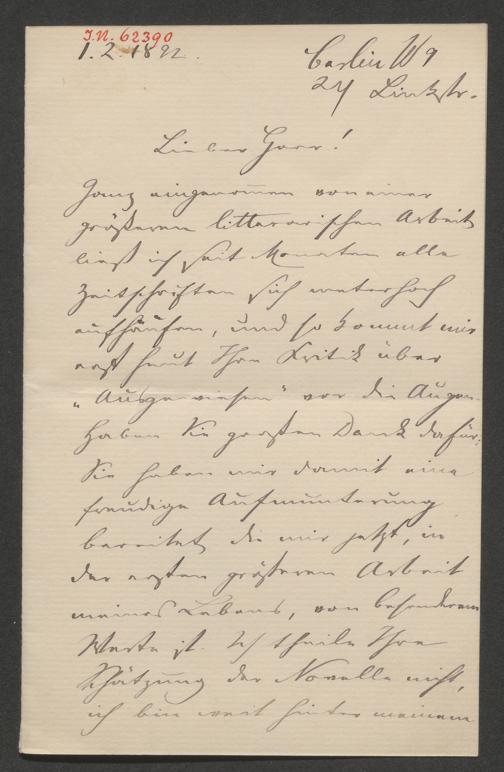 I.N. 62390
1.2.1892.
Berlin W 9
24 Linkstr.
Lieber Herr!
Ganz eingenommen von einer
größeren litterarischen Arbeit
ließ ich seit Monaten alle
Zeitschriften sich meterhoch
aufhäufen, und so kommt mir
erst heut Ihre Kritik über
„Ausgewiesen" vor die Augen.
Haben Sie großen Dank dafür:
Sie haben mir damit eine
freudige Aufmunterung
bereitet die mir jetzt, in
der ersten größeren Arbeit
meines Lebens, von besonderem
Werte ist. Ich theile Ihre
Schätzung der Novelle nicht,
ich bin weit hinter meinem